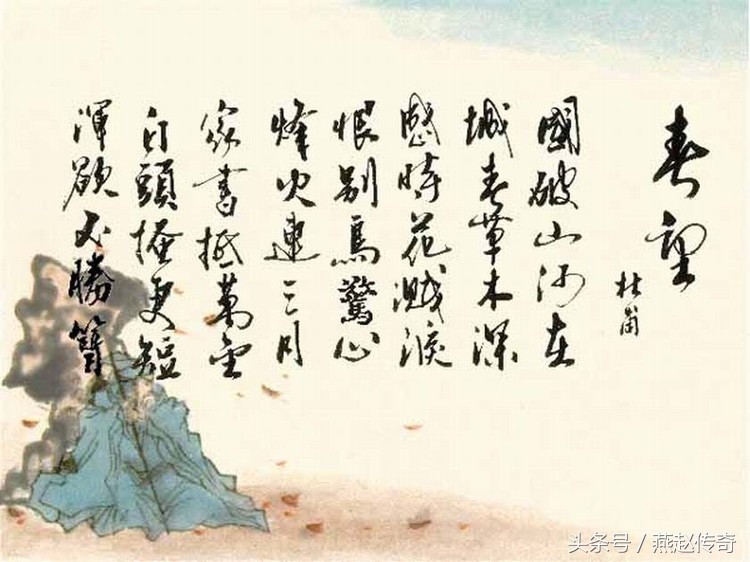 春望
杜甫
國破山河在
城春草木深
感時花濺淚
恨别鳥驚心
烽火連三月
家書抵萬金
白頭搔更短
渾欲不勝簪
头条号／燕赵传奇